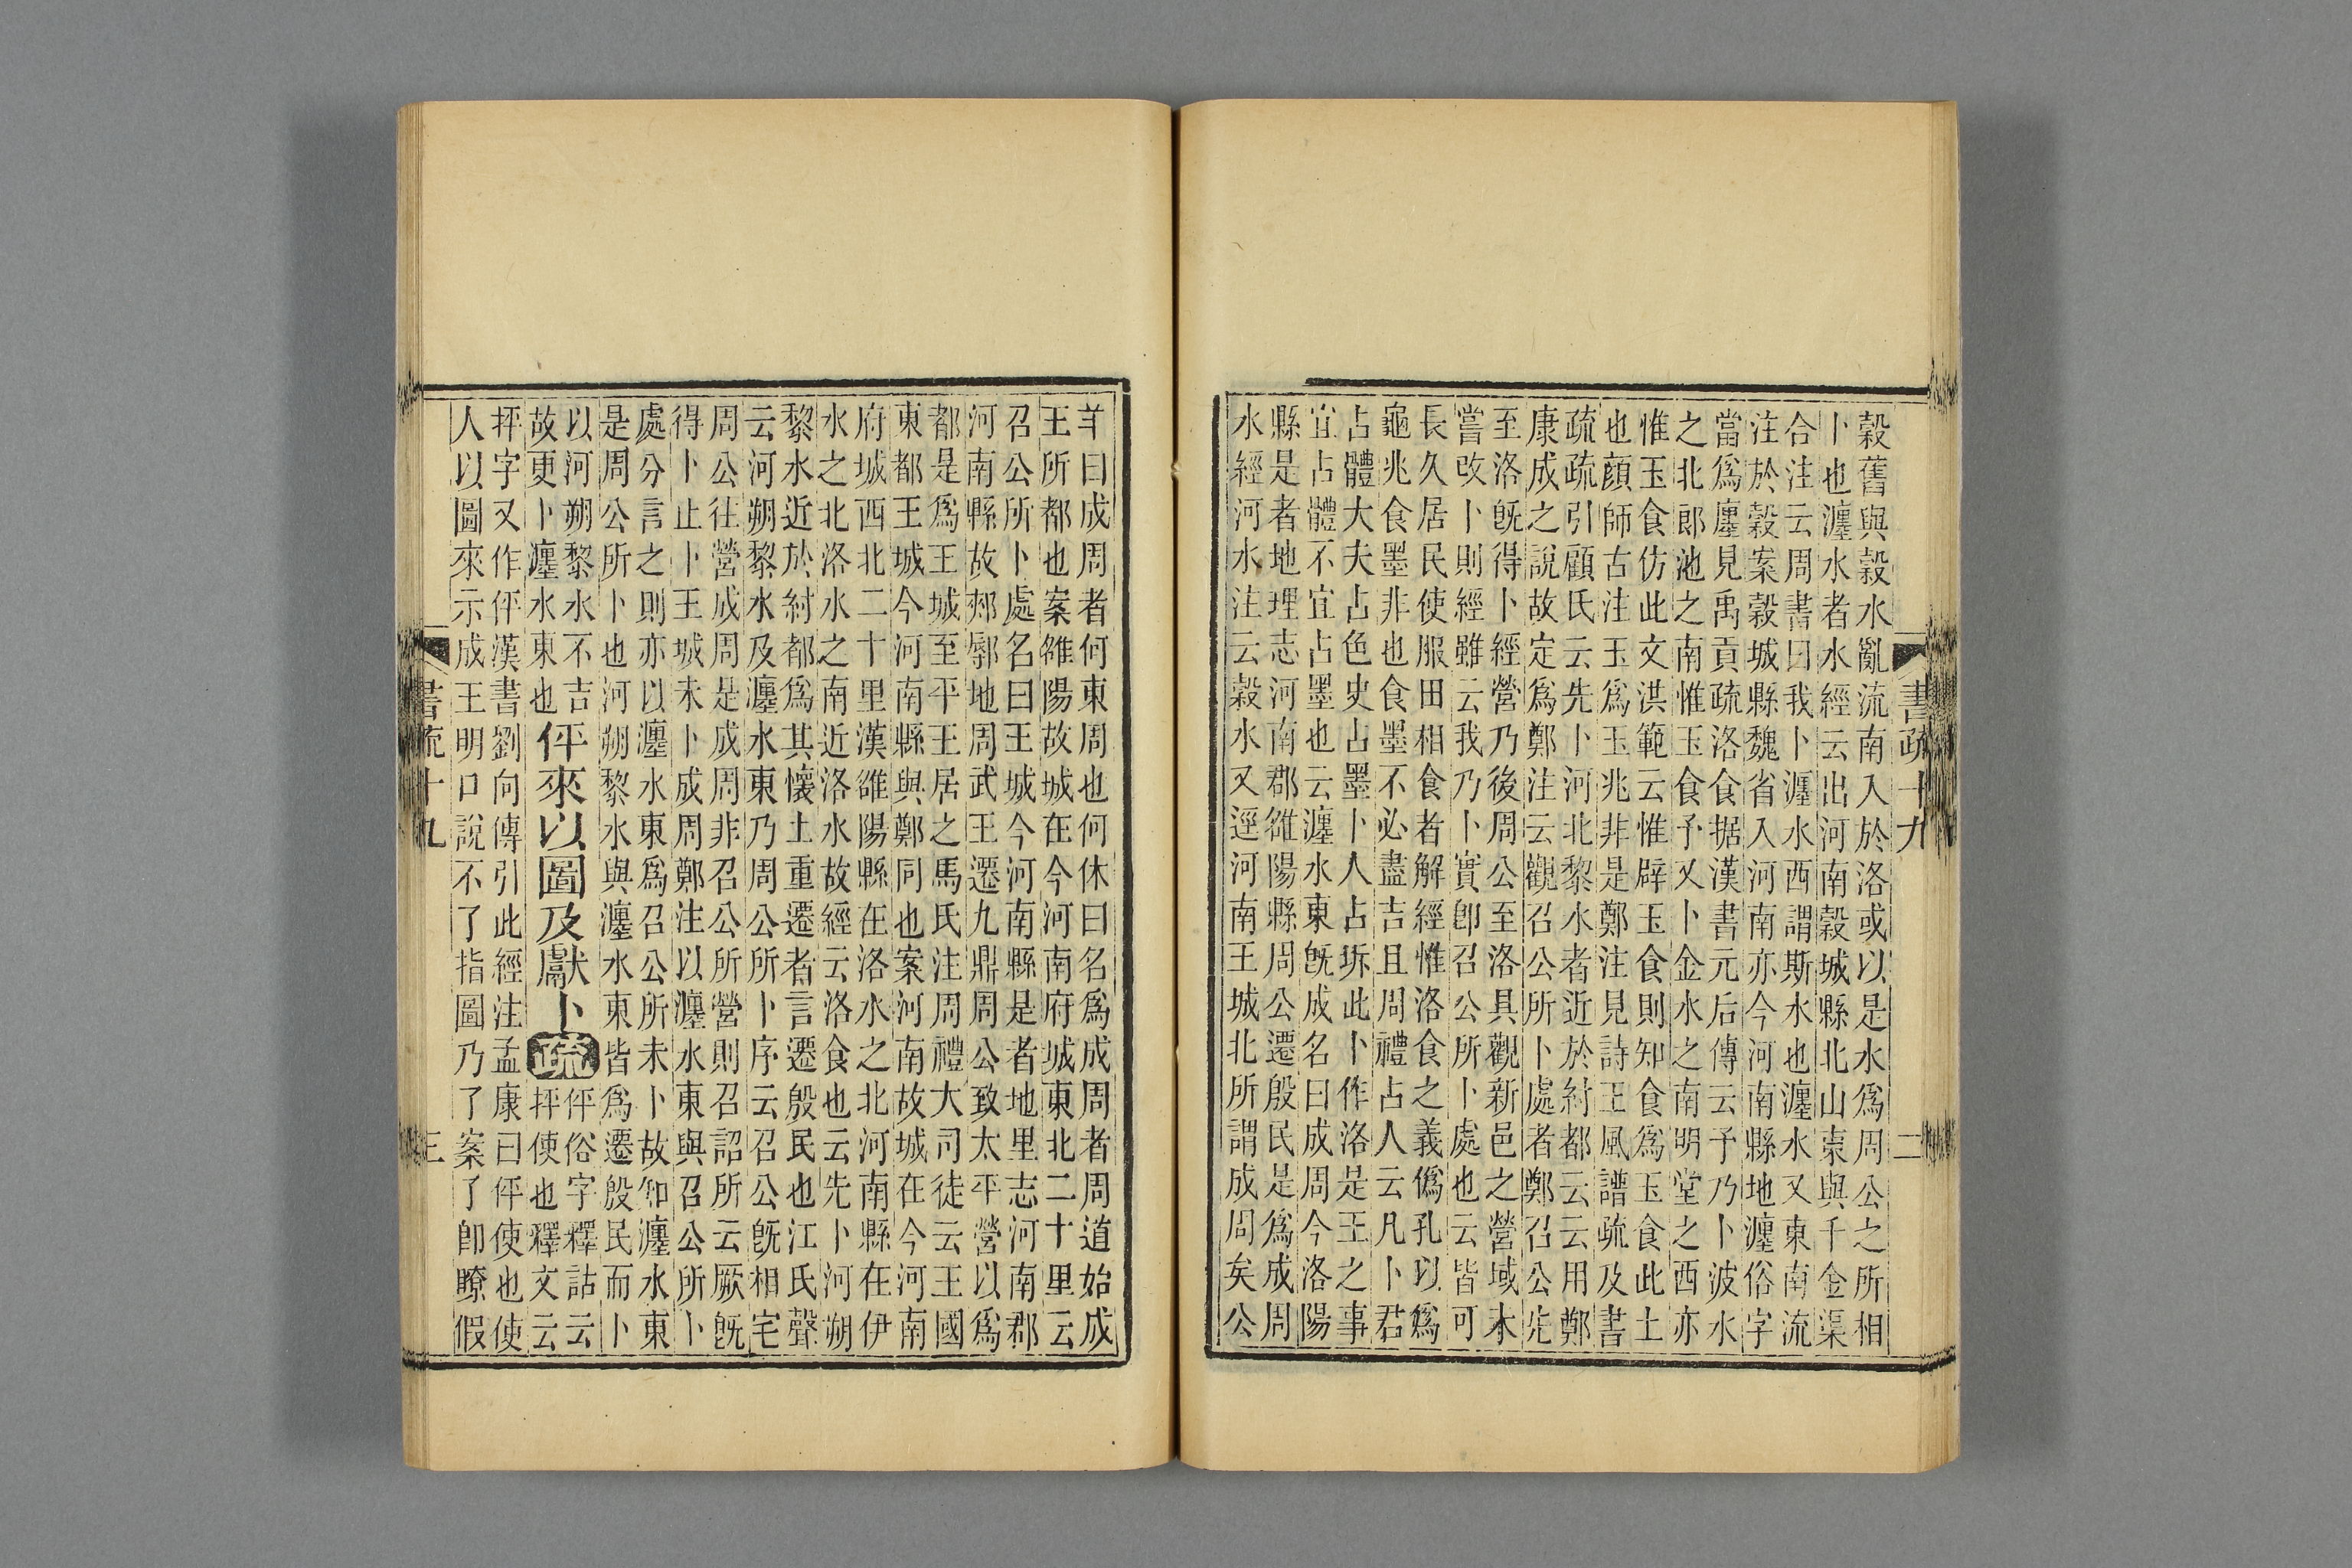 穀舊與穀水亂流南入於洛或以是水爲周公之所相
卜也瀍水者水經云出河南穀城縣北山東與千金渠
合注云周書曰我卜瀍水西謂斯水也瀍水又東南流
注於穀案穀城縣魏省入河南亦今河南縣地瀍俗字
當爲廛見禹貢疏洛食据漢書元后傳云予乃卜波水
之北郎池之南惟玉食予又卜金水之南明堂之西亦
惟玉食仿此文洪範云惟辟玉食則知食爲玉食此土
也顔師古注玉爲玉兆非是鄭注見詩王風譜疏及書
疏疏引顧氏云先卜河北黎水者近於紂都云云用鄭
康成之說故定爲鄭注云觀召公所卜處者鄭召公先
至洛旣得卜經營乃後周公至洛具觀新邑之營域未
嘗改卜則經雖云我乃卜實卽召公所卜處也云皆可
長久居民使服田相食者解經惟洛食之義僞孔以爲
龜兆食墨非也食墨不必盡吉且周禮占人云凡卜君
占體大夫占色史占墨卜人占坼此卜作洛是王之事
宜占體不宜占墨也云瀍水東旣成名曰成周今洛陽
縣是者地理志河南郡雒陽縣周公遷殷民是爲成周
水經河水注云穀水又逕河南王城北所謂成周矣公
書疏十九
二
羊曰成周者何東周也何休曰名爲成周者周道始成
王所都也案雒陽故城在今河南府城東北二十里云
召公所卜處名曰王城今河南縣是者地里志河南郡
河南縣故郟鄏地周武王遷九鼎周公致太平營以爲
都是爲王城至平王居之馬氏注周禮大司徒云王國
東都王城今河南縣與鄭同也案河南故城在今河南
府城西北二十里漢雒陽縣在洛水之北河南縣在伊
水之北洛水之南近洛水故經云洛食也云先卜河朔
黎水近於紂都爲其懷土重遷者言遷殷民也江氏聲
云河朔黎水及瀍水東乃周公所卜序云召公旣相宅
周公往營成周是成周非召公所營則召詔所云厥旣
得卜止卜王城未卜成周鄭注以瀍水東與召公所卜
處分言之則亦以瀍水東爲召公所未卜故知瀍水東
是周公所卜也河朔黎水與瀍水東皆爲遷殷民而卜
以河朔黎水不吉故更卜瀍水東也伻來以圖及獻卜疏伻俗字釋詁云抨使也釋文云
抨字又作伻漢書劉向傳引此經注孟康曰伻使也使
人以圖來示成王明口說不了指圖乃了案了卽瞭假
書疏十九
三